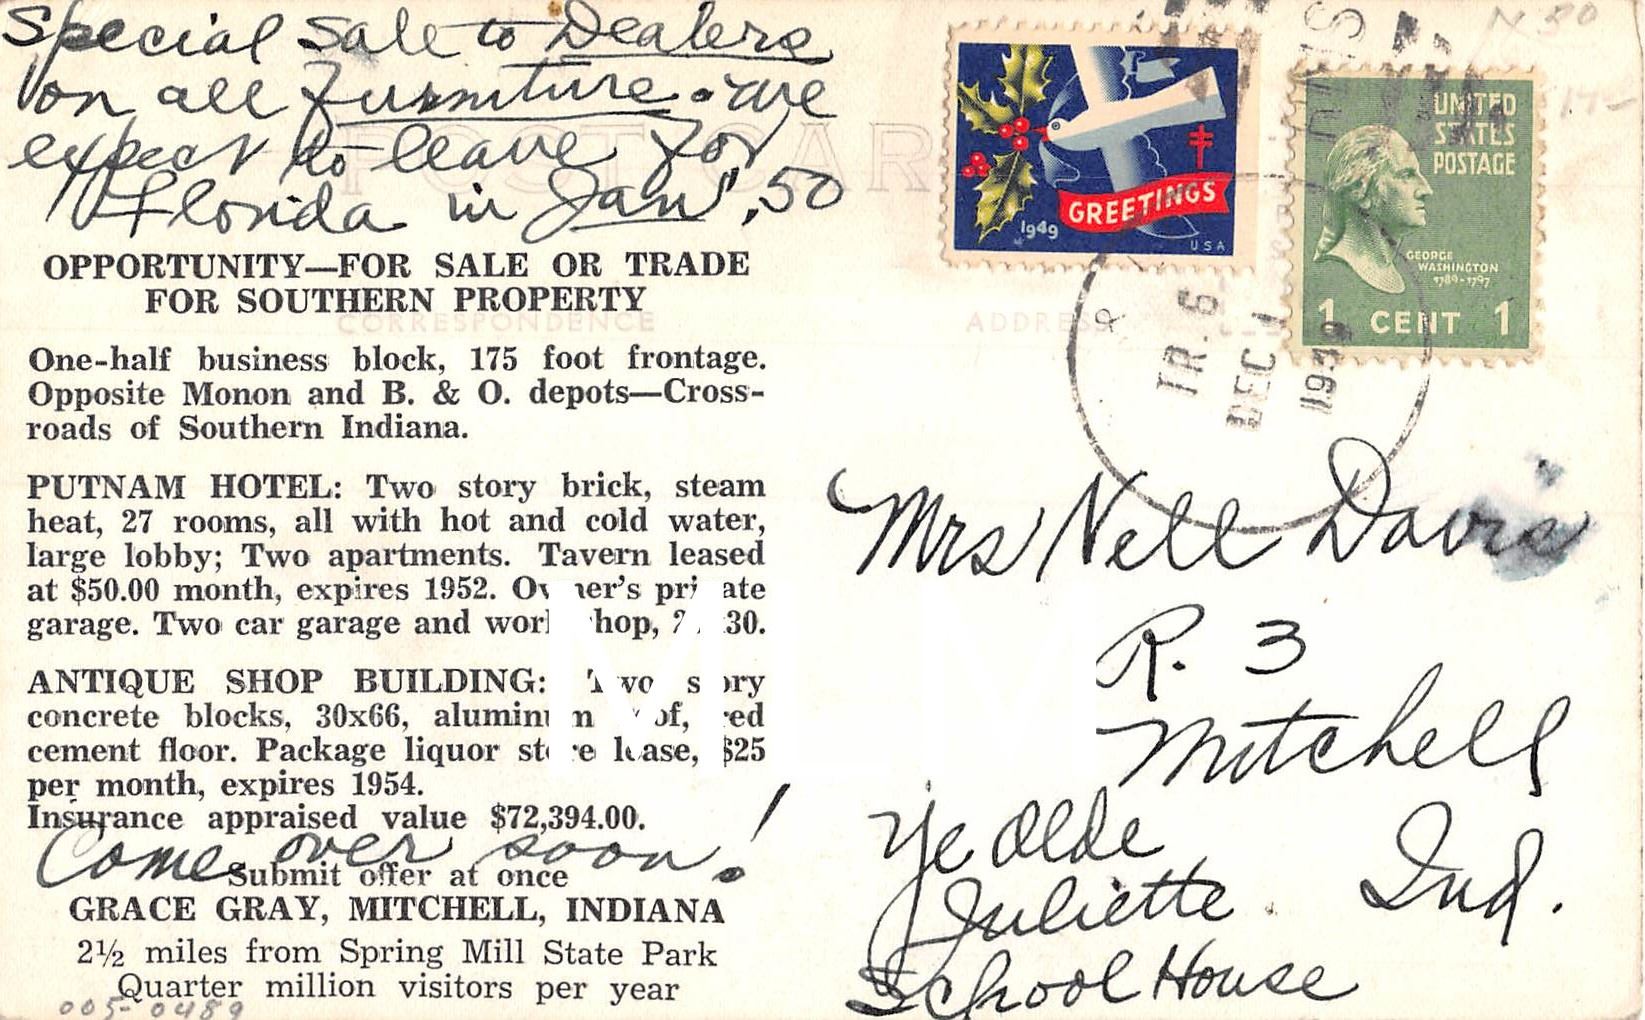 Special Sale to Dealers
on all Furniture. are
expect to leave for
Florida in Jan, 50
POST CARD
OPPORTUNITY—FOR SALE OR TRADE
FOR SOUTHERN PROPERTY
CORRESPONDENCE
One-half business block, 175 foot frontage.
Opposite Monon and B. & O. depots—Cross-
roads of Southern Indiana.
PUTNAM HOTEL: Two story brick, steam
heat, 27 rooms, all with hot and cold water,
large lobby; Two apartments. Tavern leased
at $50.00 month, expires 1952. Owner's private
garage. Two car garage and workshop, 30.
ANTIQUE SHOP BUILDING: Two story
concrete blocks, 30x66, aluminum roof, red
cement floor. Package liquor store lease, $25
per month, expires 1954.
Insurance appraised value $72,394.00.
Come over soon!
Submit offer at once
GRACE GRAY, MITCHELL, INDIANA
2½ miles from Spring Mill State Park
Quarter million visitors per year
005-0489
GREETINGS
1949
USA
UNITED
STATES
POSTAGE
GEORGE
WASHINGTON
1789-1797
1 CENT 1
ADDRESS
TR. 6
DEC 1
1949
Mrs Nell Davis
R. 3
Mitchell
Ind.
Ye Olde
Juliette
School House
MLM